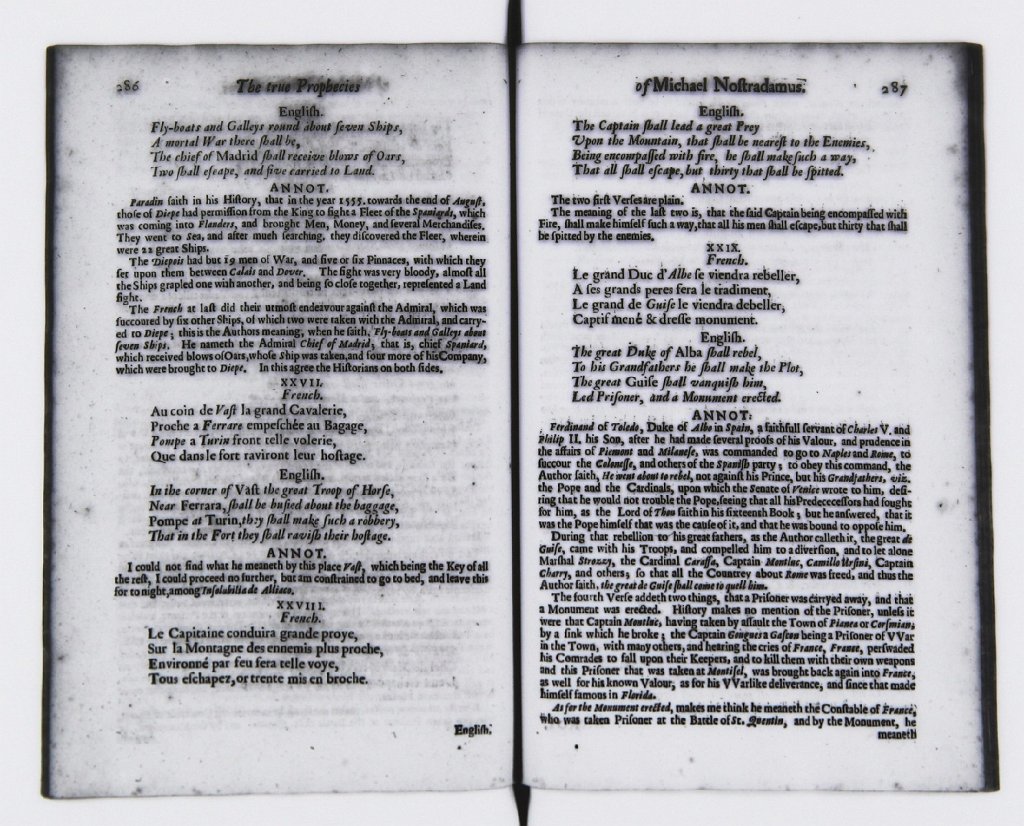 286 The true Prophecies
Engliſh.
Fly-boats and Galleys round about ſeven Ships,
A mortal War there ſhall be,
The chief of Madrid ſhall receive blows of Oars,
Two ſhall eſcape, and five carried to Land.
ANNOT.
Paradin ſaith in his Hiſtory, that in the year 1555. towards the end of Auguſt,
thoſe of Diepe had permiſſion from the King to fight a Fleet of the Spaniards, which
was coming into Flanders, and brought Men, Money, and ſeveral Merchandiſes.
They went to Sea, and after much ſearching, they diſcovered the Fleet, wherein
were 22 great Ships.
The Diepois had but 19 men of War, and five or ſix Pinnaces, with which they
ſet upon them between Calais and Dover. The fight was very bloody, almoſt all
the Ships grapled one with another, and being ſo cloſe together, repreſented a Land
fight.
The French at laſt did their utmoſt endeavour againſt the Admiral, which was
ſuccoured by ſix other Ships, of which two were taken with the Admiral, and carry-
ed to Diepe; this is the Authors meaning, when he ſaith, Fly-boats and Galleys about
ſeven Ships. He nameth the Admiral Chief of Madrid; that is, chief Spaniard,
which received blows of Oars, whoſe Ship was taken, and four more of his Company,
which were brought to Diepe. In this agree the Hiſtorians on both ſides.
XXVII.
French.
Au coin de Vaſt la grand Cavalerie,
Proche a Ferrare empeſchée au Bagage,
Pompe a Turin front telle volerie,
Que dans le fort raviront leur hoſtage.
Engliſh.
In the corner of Vaſt the great Troop of Horſe,
Near Ferrara, ſhall be buſied about the baggage,
Pompe at Turin, they ſhall make ſuch a robbery,
That in the Fort they ſhall raviſh their hoſtage.
ANNOT.
I could not find what he meaneth by this place Vaſt, which being the Key of all
the reſt, I could proceed no further, but am conſtrained to go to bed, and leave this
for to night, among Inſolubilia de Alliaco.
XXVIII.
French.
Le Capitaine conduira grande proye,
Sur la Montagne des ennemis plus proche,
Environné par feu ſera telle voye,
Tous eſchapez, or trente mis en broche.
Engliſh.
of Michael Noſtradamus. 287
Engliſh.
The Captain ſhall lead a great Prey
Upon the Mountain, that ſhall be neareſt to the Enemies,
Being encompaſſed with fire, he ſhall make ſuch a way,
That all ſhall eſcape, but thirty that ſhall be ſpitted.
ANNOT.
The two firſt Verſes are plain.
The meaning of the laſt two is, that the ſaid Captain being encompaſſed with
Fire, ſhall make himſelf ſuch a way, that all his men ſhall eſcape, but thirty that ſhall
be ſpitted by the enemies.
XXIX.
French.
Le grand Duc d'Albe ſe viendra rebeller,
A ſes grands peres fera le tradiment,
Le grand de Guiſe le viendra debeller,
Captif mené & dreſſe monument.
Engliſh.
The great Duke of Alba ſhall rebel,
To his Grandfathers he ſhall make the Plot,
The great Guiſe ſhall vanquiſh him,
Led Priſoner, and a Monument erected.
ANNOT:
Ferdinand of Toledo, Duke of Albe in Spain, a faithfull ſervant of Charles V. and
Philip II. his Son, after he had made ſeveral proofs of his Valour, and prudence in
the affairs of Piemont and Milaneſe, was commanded to go to Naples and Rome, to
ſuccour the Coloneſſe, and others of the Spaniſh party; to obey this command, the
Author ſaith, He went about to rebel, not againſt his Prince, but his Grandfathers, viz.
the Pope and the Cardinals, upon which the Senate of Venice wrote to him, deſi-
ring that he would not trouble the Pope, ſeeing that all his Predececeſſors had fought
for him, as the Lord of Thou ſaith in his ſixteenth Book; but he anſwered, that it
was the Pope himſelf that was the cauſe of it, and that he was bound to oppoſe him.
During that rebellion to his great fathers, as the Author calleth it, the great de
Guiſe, came with his Troops, and compelled him to a diverſion, and to let alone
Marſhal Strozzy, the Cardinal Caraffa, Captain Montluc, Camillo Urſini, Captain
Charry, and others; ſo that all the Countrey about Rome was freed, and thus the
Author ſaith, the great de Guiſe ſhall come to quell him.
The fourth Verſe addeth two things, that a Priſoner was carryed away, and that
a Monument was erected. Hiſtory makes no mention of the Priſoner, unleſs it
were that Captain Montluc, having taken by aſſault the Town of Pianca or Corſmian,
by a ſink which he broke; the Captain Gourgues a Gaſcon being a Priſoner of VVar
in the Town, with many others, and hearing the cries of France, France, perſwaded
his Comrades to fall upon their Keepers, and to kill them with their own weapons
and this Priſoner that was taken at Montiſel, was brought back again into France,
as well for his known Valour, as for his VVarlike deliverance, and ſince that made
himſelf famous in Florida.
As for the Monument erected, makes me think he meaneth the Conſtable of France,
who was taken Priſoner at the Battle of St. Quentin, and by the Monument, he
meaneth